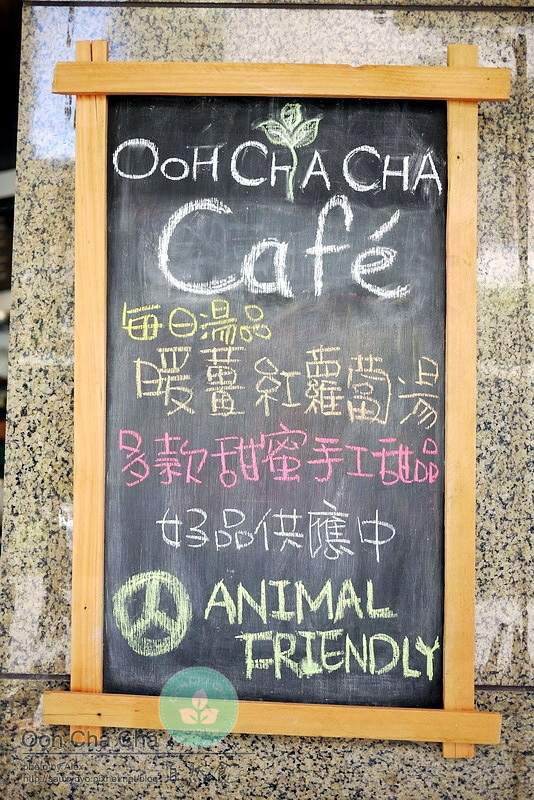 OOH CHA CHA
Café
每日湯品
暖薑紅蘿蔔湯
多款甜蜜手工甜品
好品供應中
ANIMAL
FRIENDLY
Ooh Cha Cha
photo by Alex